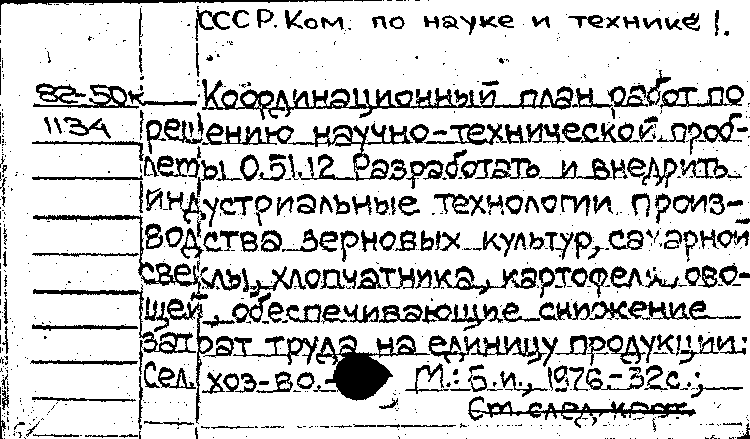 СССР. Ком. по науке и технике
82-50к Координационный план работ по
1134 решению научно-технической проб-
лемы 0.51.12 Разработать и внедрить
индустриальные технологии произ-
водства зерновых культур, сахарной
свеклы, хлопчатника, картофеля, ово-
щей, обеспечивающие снижение
затрат труда на единицу продукции:
Сел. хоз-во.- М.: Б.и., 1976.-32с.;
См. след. карт.